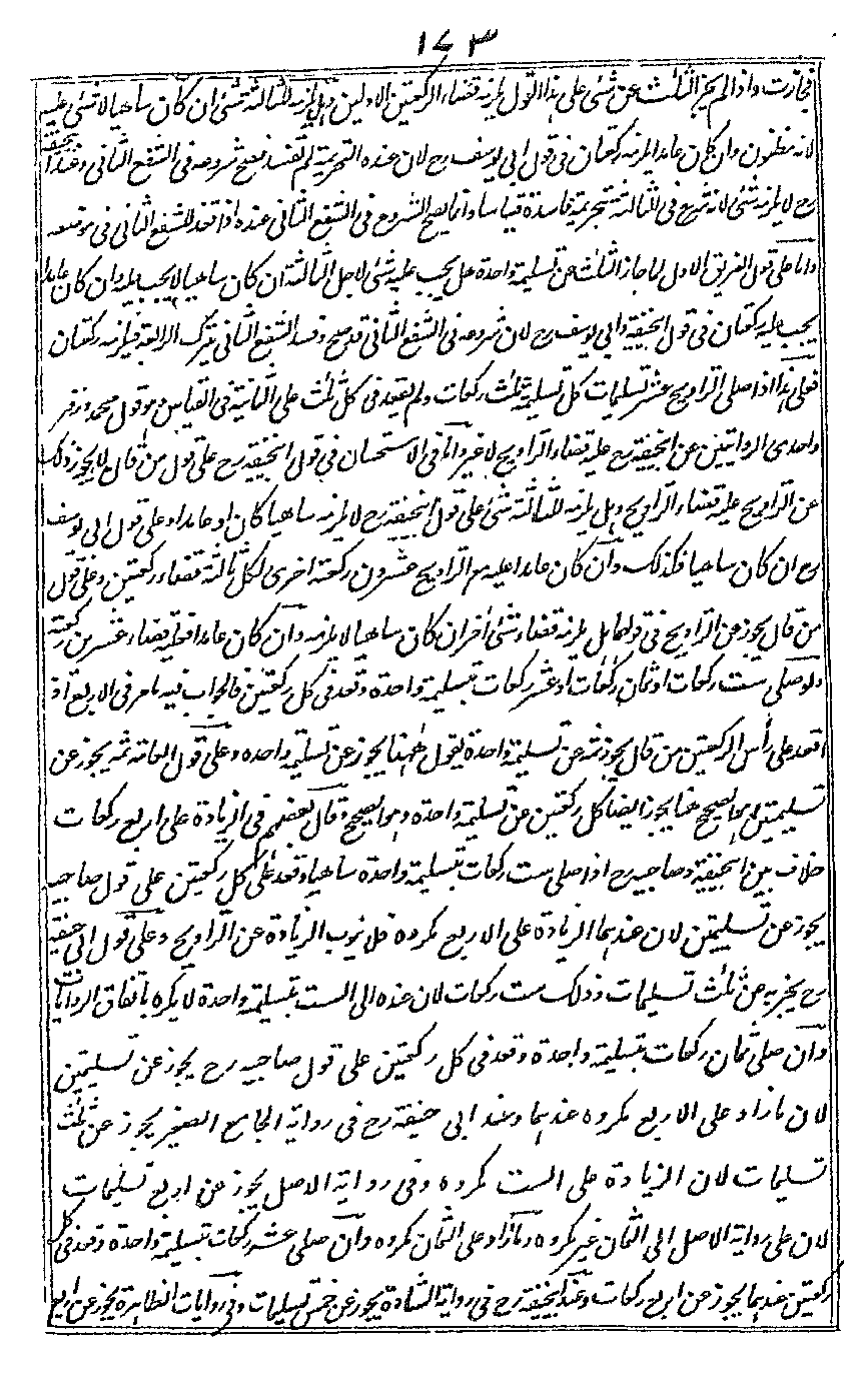 ١٧٣
فجازت واذا لم يجز الثلث عن شئ على هذا القول يلزمه قضاء الركعتين الاوليين وهل يلزمه للثالثة شئ ان كان ساهيا لا شئ عليه
لانه مظنون وان كان عامدا لزمه ركعتان فى قول ابى يوسف رح لان عنده التحريمة لم تفسد فصح شروعه فى الشفع الثانى وعند ابى حنيفة
رح لا يلزمه شئ لانه شرع فى الثالثة بتحريمة فاسدة قياسا وانما يصح الشروع فى الشفع الثانى عنده اذا قعد للشفع الثانى فى موضعه
واما على قول الفريق الاول لما جاز الثلث عن تسليمة واحدة هل يجب عليه شئ لاجل الثالثة ان كان ساهيا لا يجب عليه وان كان عامدا
يجب عليه ركعتان فى قول ابيحنيفة وابى يوسف رح لان شروعه فى الشفع الثانى قد صح وفسد الشفع الثانى بترك الرابعة فيلزمه ركعتان
فعلى هذا اذا صلى التراويح عشر تسليمات كل تسليمة ثلث ركعات ولم يقعد فى كل ثلث على الثانية فى القياس وهو قول محمد وزفر
واحدى الروايتين عن ابيحنيفة رح عليه قضاء التراويح لا غير واما فى الاستحسان فى قول ابيحنيفة رح على قول من قال لا يجوز ذلك
عن التراويح عليه قضاء التراويح وهل يلزمه للثالثة شئ على قول ابيحنيفة رح لا يلزمه ساهيا كان او عامدا وعلى قول ابى يوسف
رح ان كان ساهيا فكذلك وان كان عامدا عليه مع التراويح عشرون ركعة اخرى لكل ثالثة قضاء ركعتين وعلى قول
من قال يجوز عن التراويح فى قولهما هل يلزمه قضاء شئ اخر ان كان ساهيا لا يلزمه وان كان عامدا فعليه قضاء عشرين ركعة
ولو صلى ست ركعات او ثمان ركعات او عشر ركعات بتسليمة واحدة وقعد فى كل ركعتين فالجواب فيه ما مر فى الاربع اذا
قعد على رأس الركعتين من قال يجوز ثمه عن تسليمة واحدة يقول ههنا يجوز عن تسليمة واحدة وعلى قول العامة ثمه يجوز عن
تسليمتين هو الصحيح هنا يجوز ايضا كل ركعتين عن تسليمة واحدة وهو الصحيح وقال بعضهم فى الزيادة على اربع ركعات
خلاف بين ابيحنيفة وصاحبيه رح اذا صلى ست ركعات بتسليمة واحدة ساهيا وقعد على كل ركعتين على قول صاحبيه
يجوز عن تسليمتين لان عندهما الزيادة على الاربع مكروه فلا ينوب الزيادة عن التراويح وعلى قول ابى حنيفة
رح يجزيه عن ثلث تسليمات وذلك ست ركعات لان عنده الى الست بتسليمة واحدة لا يكره باتفاق الروايات
وان صلى ثمان ركعات بتسليمة واحدة وقعد فى كل ركعتين على قول صاحبيه رح يجوز عن تسليمتين
لان ما زاد على الاربع مكروه عندهما وعند ابى حنيفة رح فى رواية الجامع الصغير يجوز عن ثلث
تسليمات لان الزيادة على الست مكروه وفى رواية الاصل يجوز عن اربع تسليمات
لان على رواية الاصل الى الثمان غير مكروه وما زاد على الثمان مكروه وان صلى عشر ركعات بتسليمة واحدة وقعد فى كل
ركعتين عندهما يجوز عن اربع ركعات وعند ابيحنيفة رح فى رواية الشاذة يجوز عن خمس تسليمات وفى روايات الظاهرة يجوز عن اربع